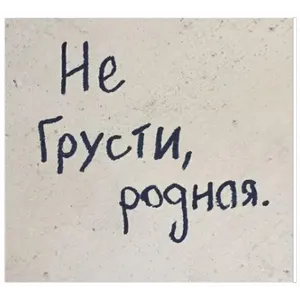 Не
Грусти,
родная.